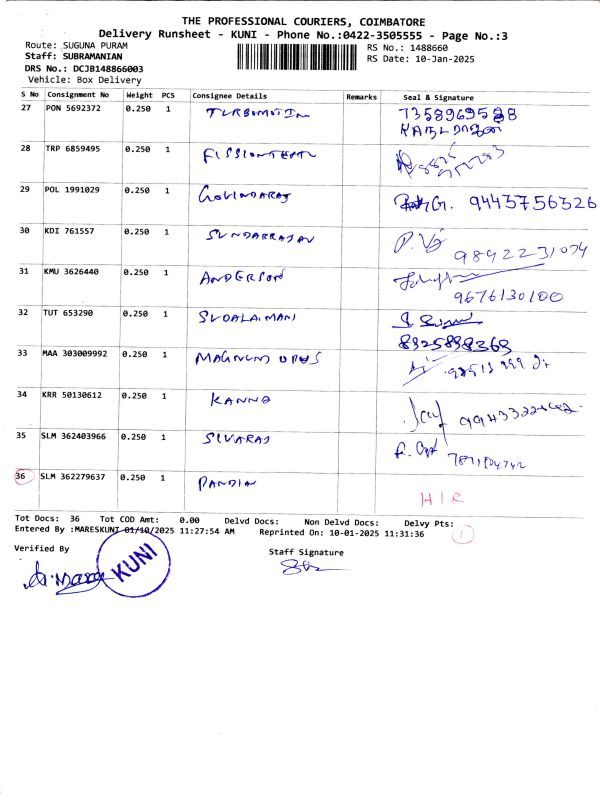 THE PROFESSIONAL COURIERS, COIMBATORE
Delivery Runsheet - KUNI - Phone No.:0422-3505555 - Page No.:3
Route: SUGUNA PURAM
RS No.: 1488660
Staff: SUBRAMANIAN
RS Date: 10-Jan-2025
DRS No.: DCJB148866003
Vehicle: Box Delivery
S No Consignment No Weight PCS Consignee Details Remarks Seal & Signature
27 PON 5692372 0.250 1
28 TRP 6859495 0.250 1
29 POL 1991029 0.250 1 GOVINDARAJ G. 9443756326
30 KDI 761557 0.250 1 SUNDARRAJAN
31 KMU 3626440 0.250 1 ANDERSON 9676130100
32 TUT 653290 0.250 1 SUDALAIMANI
8925898369
33 MAA 303009992 0.250 1 MAGNUM
34 KRR 50130612 0.250 1 KANNA
35 SLM 362403966 0.250 1 SIVARAJ
36 SLM 362279637 0.250 1 PANDIAN
HIR
Tot Docs: 36 Tot COD Amt: 0.00 Delvd Docs: Non Delvd Docs: Delvy Pts: 1
Entered By :MARESKUNI 01/10/2025 11:27:54 AM Reprinted On: 10-01-2025 11:31:36
Verified By
Staff Signature
KUNI